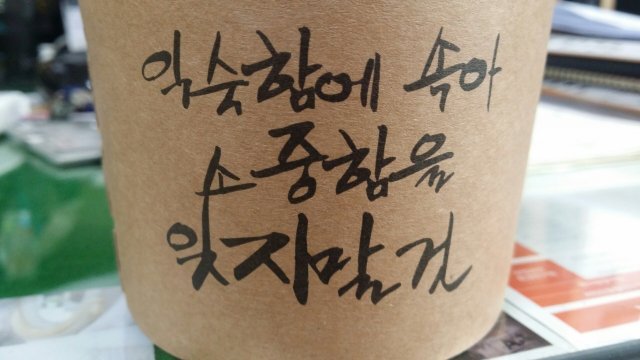 익숙함에 속아
소중함을
잊지말것